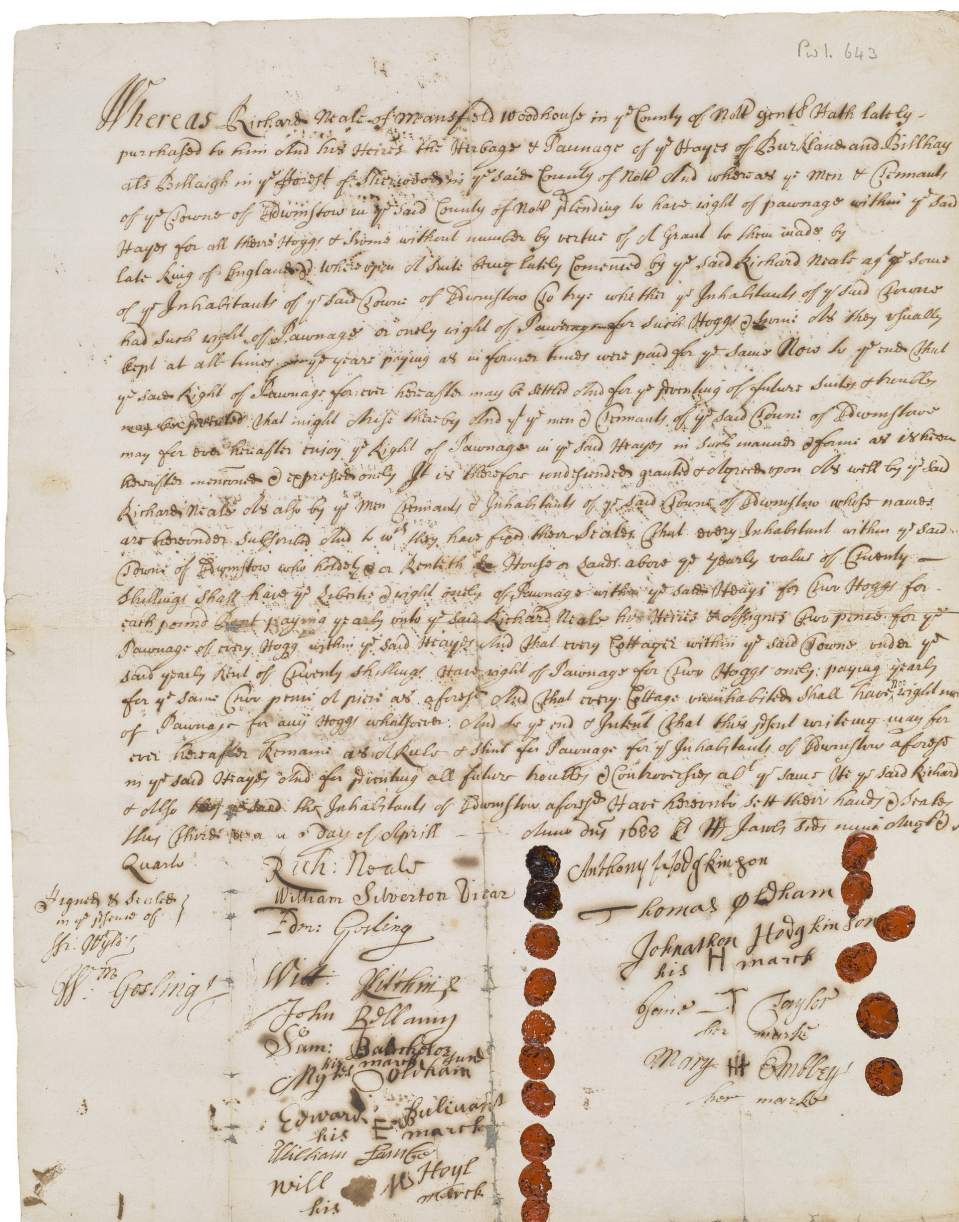 Pw1. 643
Whereas Richard Neale of Mansfield Woodhouse in ye County of Nott gent Hath lately
purchased to him And his Heires the Herbage & Paunage of ye Hayes of Burkland and Billhay
als Billaigh in ye fforest of Sherwood in ye said County of Nott And whereas ye Men & Tennants
of ye Towne of Edwinstow in ye said County of Nott ptending to have right of pawnage within ye said
Hayes for all theire Hoggs & Swine without number by vertue of A Grant to them made by
late King of England & whereupon A Suite being lately Comenced by ye said Richard Neale agt some
of ye Inhabitants of ye said Towne of Edwinstow To trye whether ye Inhabitants of ye said Towne
had such right of Pawnage or onely right of Pawnage for such Hoggs & Swine as they usually
kept at all times ye yeare paying as in former times were paid for ye same Now to ye end that
ye said Right of Pawnage for ever hereafter may be setled And for ye pventing of future Suites & troubles
that might Arise thereby And yt ye men & Tennants of ye said Towne of Edwinstowe
may for ever hereafter enjoy ye Right of Pawnage in ye said Hayes in such manner & forme as is herein
hereafter menconed & expressed onely It is therefore condesended granted & Agreed upon As well by ye said
Richard Neale As also by ye Men Tennants & Inhabitants of ye said Towne of Edwinstow whose names
are hereunder subscribed And to wch they have fixed their Seales That every Inhabitant within ye said
Towne of Edwinstow who holdeth or Renteth House or Lands above ye yearly value of Twenty
Shillings shall have ye Libertie & right onely of Pawnage within ye said Heays for Two Hoggs for
each pound Rent paying yearly unto ye said Richard Neale his Heires & Assignes Two pence for ye
Pawnage of every Hogg within ye said Heayes And that every Cottager within ye said Towne under ye
said yearly Rent of Twenty Shillings Have right of Pawnage for Two Hoggs onely: paying yearly
for ye same Two pence A piece as aforesd And that every Cottage uninhabited shall have noe right
of Pawnage for any Hoggs whatsoever. And to ye end & Intent That this psent writeing may for
ever hereafter Remaine as A Rule & stint for Pawnage for ye Inhabitants of Edwinstow aforesd
in ye said Heayes And for pventing all future troubles & Controversies abt ye same We ye said Richard
& Also the Inhabitants of Edwinstow aforesd Have hereunto sett their hands & Seales
this Third Day of Aprill Anno Dni 1688 Jacobi Scdi nunc Anglie
Quarto
Signed & Sealed
in ye psence of
Wm Gosling
Rich: Neale
William Silverton Vicar
Edm: Gosling
Will: Kitchin
John Bellamy
Sam: Batchelor
his march
Myles Oldham Jund
Edward Bulivant
his E march
William Lambe
Will W Hoyl
his march
Anthony Hodgkinson
Thomas Oldham
Johnathon Hodgkinson
his H march
Jane T Taylor
her marke
Mary H Embley
her marke